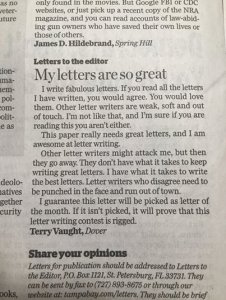 only found in the movies. But Google FBI or CDC
as no websites, or just pick up a recent copy of the NRA
veter- magazine, and you can read accounts of law-abid-
uture ing gun owners who have saved their own lives or
those of others.
James D. Hildebrand, Spring Hill
Letters to the editor
My letters are so great
I write fabulous letters. If you read all the letters
I have written, you would agree. You would love
them. Other letter writers are weak, soft and out
of touch. I'm not like that, and I'm sure if you are
reading this you aren't either.
This paper really needs great letters, and I am
awesome at letter writing.
Other letter writers might attack me, but then
they go away. They don't have what it takes to keep
writing great letters. I have what it takes to write
the best letters. Letter writers who disagree need to
be punched in the face and run out of town.
I guarantee this letter will be picked as letter of
the month. If it isn't picked, it will prove that this
letter writing contest is rigged.
Terry Vaught, Dover
Share your opinions
Letters for publication should be addressed to Letters to
the Editor, P.O. Box 1121, St. Petersburg, FL 33731. They
can be sent by fax to (727) 893-8675 or through our
website at: tampabay.com/letters. They should be brief